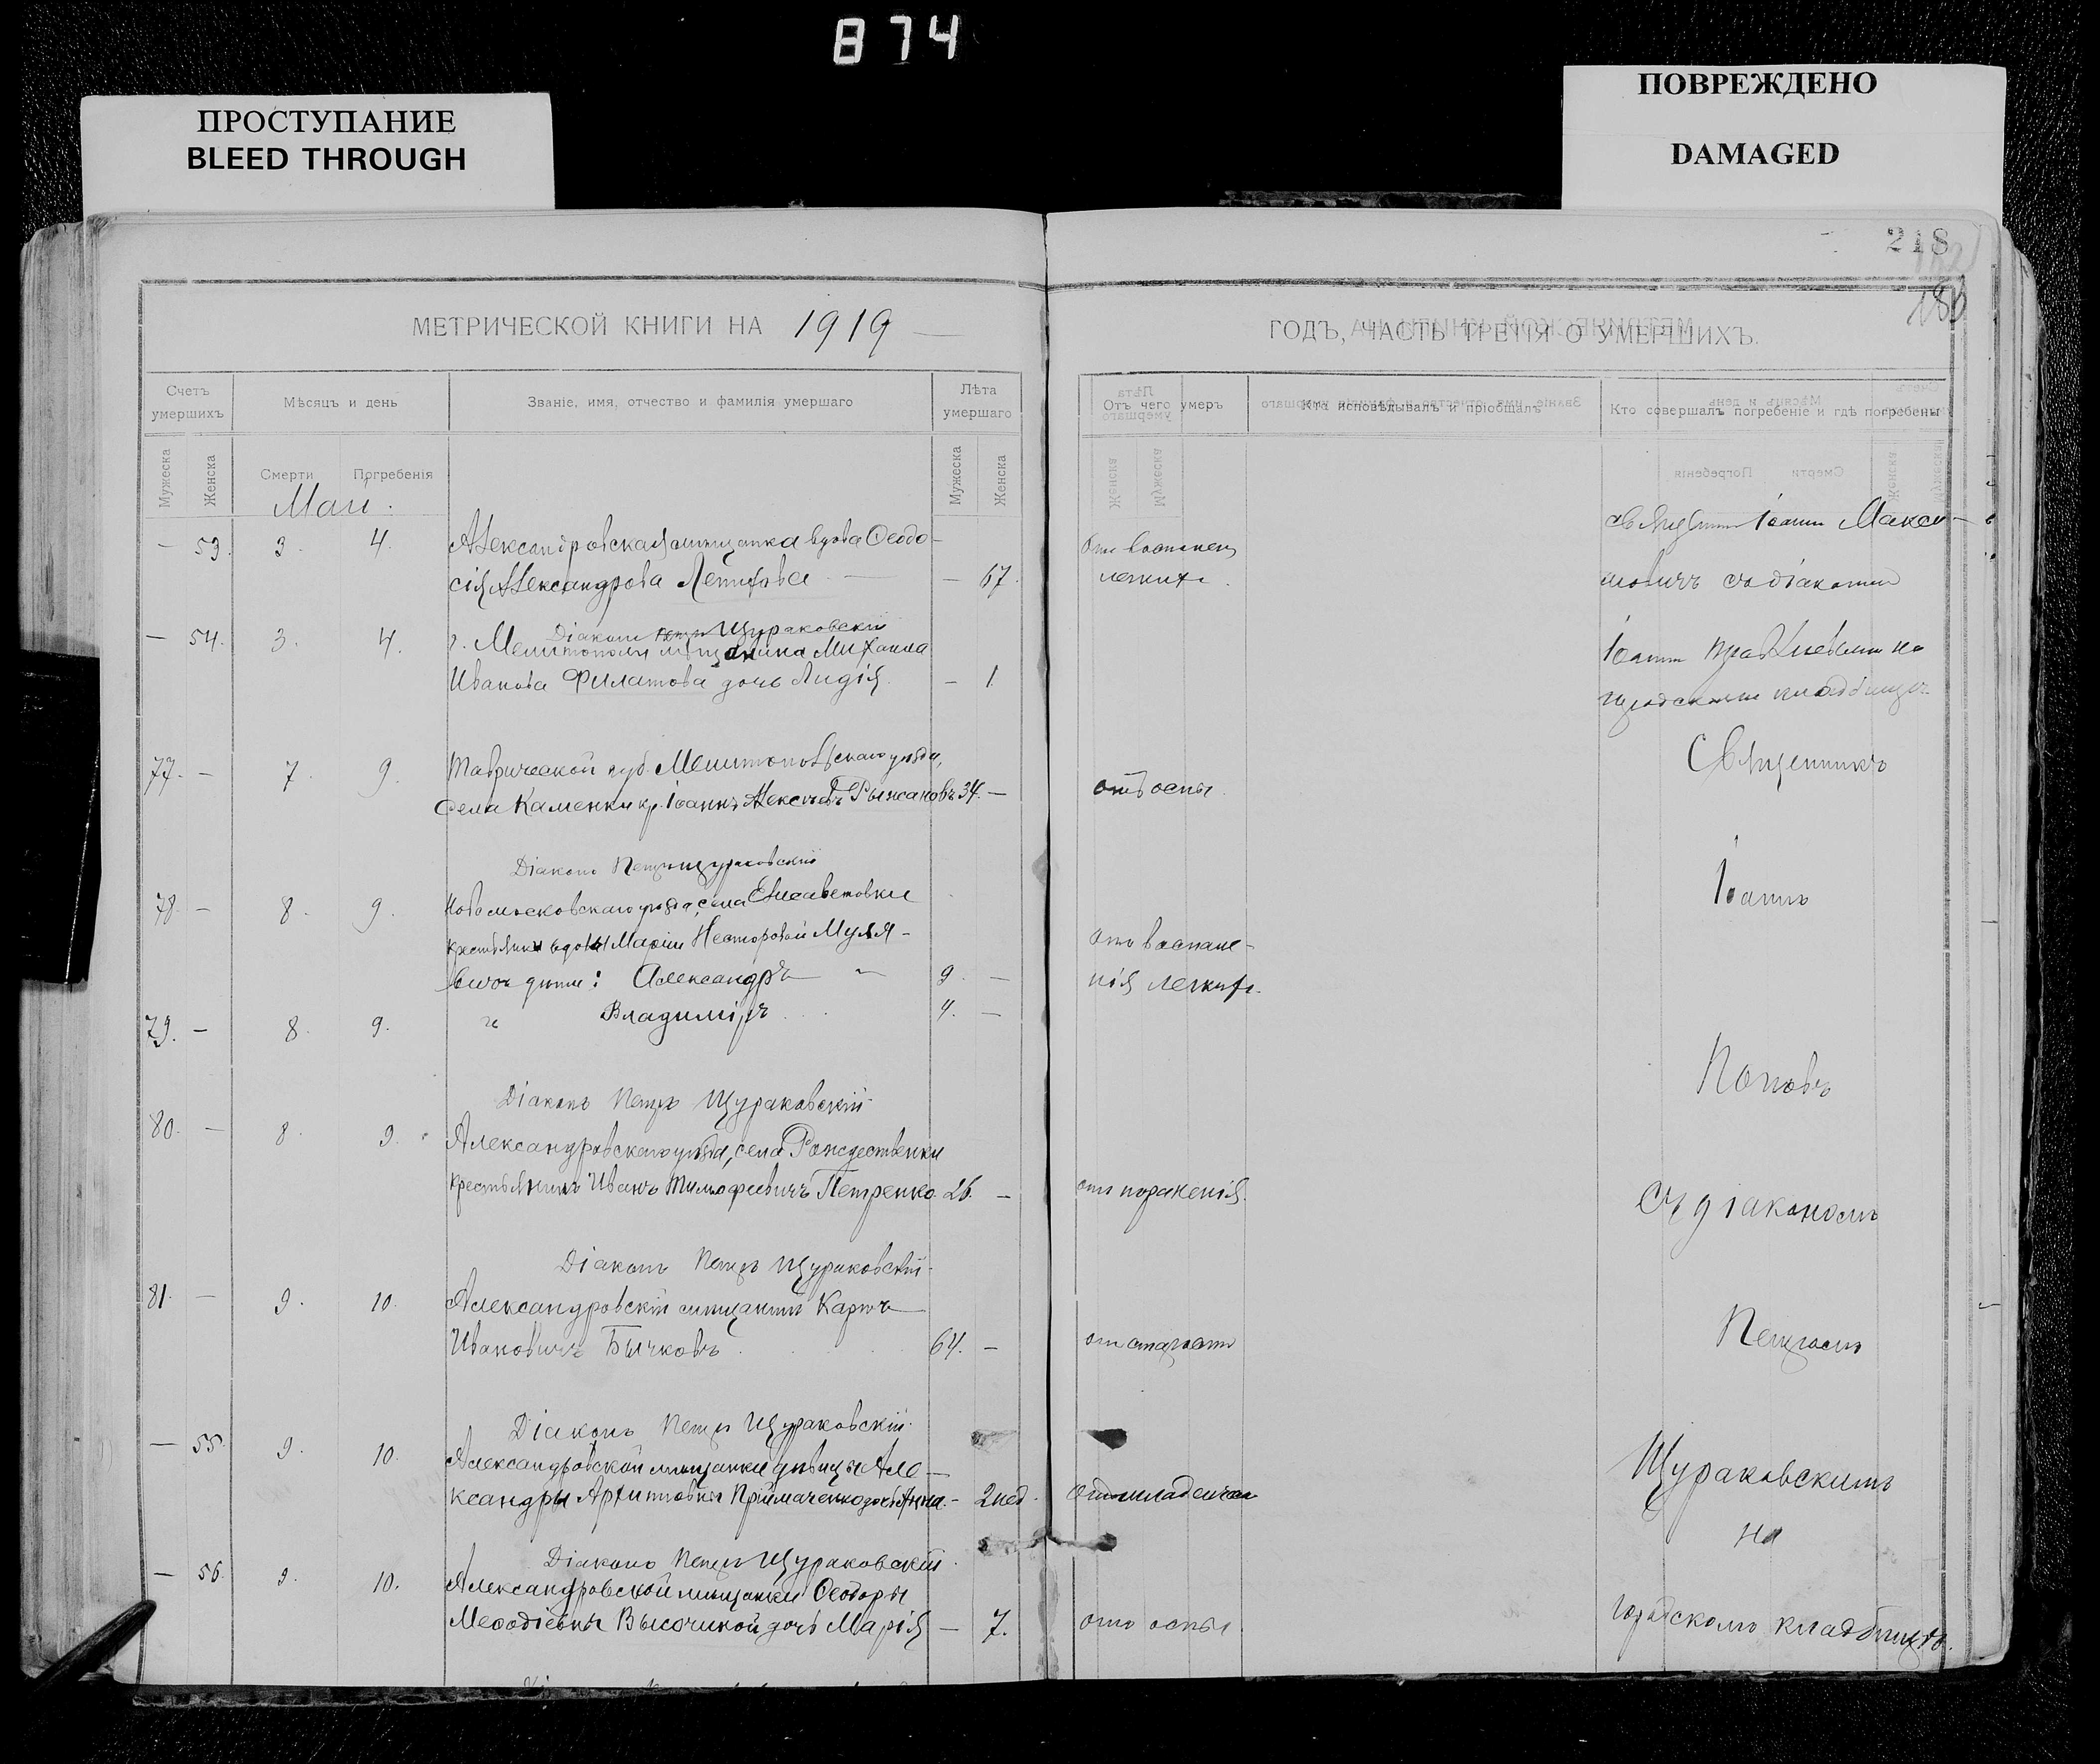 874
ПРОСТУПАНИЕ
BLEED THROUGH
ПОВРЕЖДЕНО
DAMAGED
218
МЕТРИЧЕСКОЙ КНИГИ НА 1919
ГОДЪ, ЧАСТЬ ТРЕТІЯ О УМЕРШИХЪ.
Счетъ умершихъ
Мѣсяцъ и день
Званіе, имя, отчество и фамилія умершаго
Лѣта умершаго
Отъ чего умеръ
Кто исповѣдывалъ и пріобщалъ
Кто совершалъ погребеніе и гдѣ погребены
Мужеска
Женска
Смерти
Погребенія
Мужеска
Женска
Май.
— 53. 3. 4. Александровская мѣщанка вдова Ѳеодо-
сія Александрова — 67.
Отъ воспаленія
легкихъ.
Священникъ Іоаннъ Макси-
мовичъ съ діакономъ
Іоанномъ на
городскомъ кладбищѣ
Діаконъ Щураковскій
— 54. 3. 4. г. Мелитополя мѣщанина Михаила
Иванова Филатова дочь Лидія. — 1
77. — 7. 9. Таврической губ. Мелитопольскаго уѣзда,
села Каменки кр. Іоаннъ Алексѣевъ Рыжановъ 34. —
отъ оспы.
Священникъ
Діаконъ Петръ Щураковскій
78. — 8. 9. Новомосковскаго уѣзда, села Елисаветовки
крестьянки вдовы Маріи Несторовой
дѣти: Александръ 9. —
Отъ воспале-
нія легкихъ.
Іоаннъ
79. — 8. 9. и Владиміръ 4. —
Поповъ
Діаконъ Петръ Щураковскій
80. — 8. 9. Александровскаго уѣзда, села Рождественки
крестьянинъ Иванъ Тимофеевичъ Петренко. 26. —
отъ пораженія.
Съ діакономъ
Діаконъ Петръ Щураковскій
81. — 9. 10. Александровскій мѣщанинъ Карпъ
Ивановичъ Бычковъ 64. —
отъ старости
Петромъ
Діаконъ Петръ Щураковскій
— 55. 9. 10. Александровской мѣщанки дѣвицы Але-
ксандры Архиповны Прiймаченко дочь Анна. — 2 нед.
Щураковскимъ
на
Діаконъ Петръ Щураковскій
— 56. 9. 10. Александровской мѣщанки Ѳеодоры
Меѳодіевны Высочиной дочь Марія — 7.
отъ оспы
городскомъ кладбищѣ.